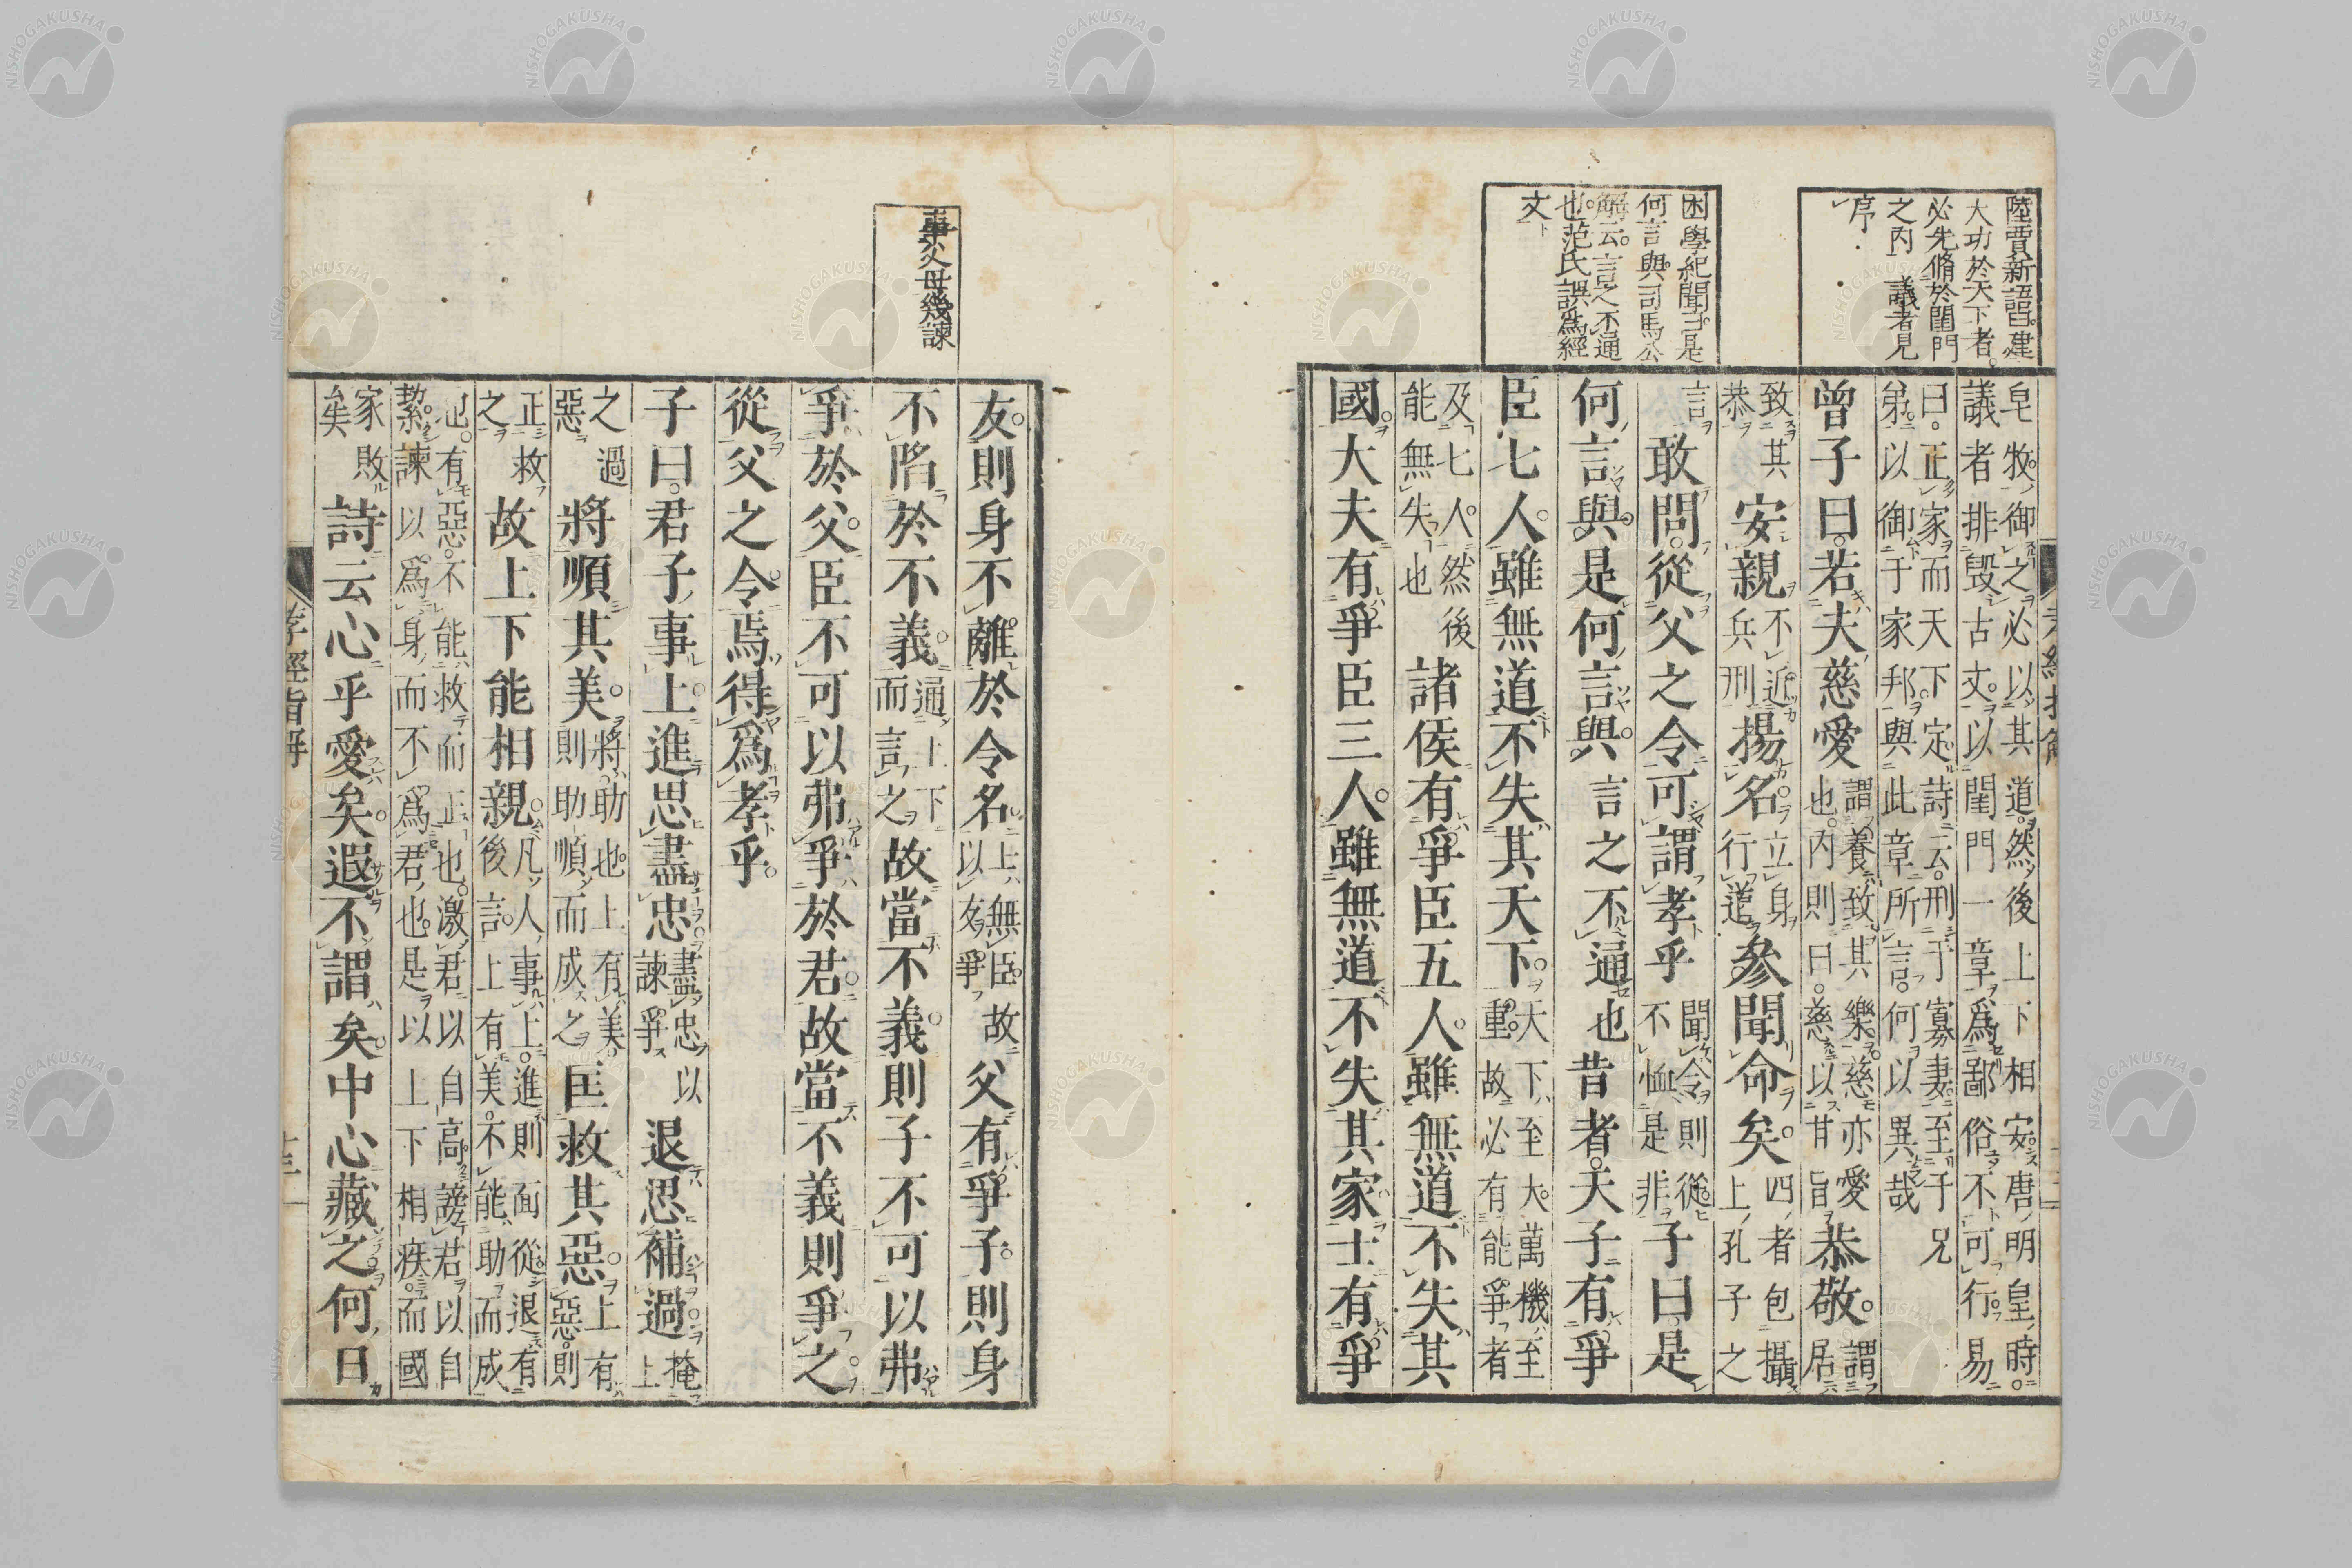 陸賈新語曰建
大功於天下者
必先脩於閨門
之内 議者見
序
困學紀聞云是
何言與司馬公
解云言之不通
也范氏誤爲經
文
皂牧御之必以其道然後上下相安唐明皇時
議者排毀古文以閨門一章爲鄙俗不可行易
曰正家而天下定詩云刑于寡妻至于兄
弟以御于家邦與此章所言何以異哉
曾子曰若夫慈愛 謂養致其樂慈亦愛也内則曰慈以甘旨 恭敬 謂居
致其恭 安親 不近兵刑 揚名 立身行道 參聞命矣 四者包攝上孔子之
言 敢問從父之令可謂孝乎 聞令則從不恤是非 子曰是
何言與是何言與 言之不通也 昔者天子有爭
臣七人雖無道不失其天下 天下至大萬機至重故必有能爭者
及七人然後能無失也 諸侯有爭臣五人雖無道不失其
國大夫有爭臣三人雖無道不失其家士有爭
事父母幾諫
友則身不離於令名 上無臣故以友爭 父有爭子則身
不陷於不義 通上下而言之 故當不義則子不可以弗
爭於父臣不可以弗爭於君故當不義則爭之
從父之令焉得爲孝乎
子曰君子事上進思盡忠 盡忠以諫爭 退思補過 掩上
之過惡 將順其美 將助也上有美則助順而成之 匡救其惡 上有惡則
正救之 故上下能相親 凡人事上進則面從退有後言上有美不能助而成
也有惡不能救而正也激君以自高謗君以自
絜諫以爲身而不爲君也是以上下相疾而國
家敗矣 詩云心乎愛矣遐不謂矣中心藏之何日
孝經指解